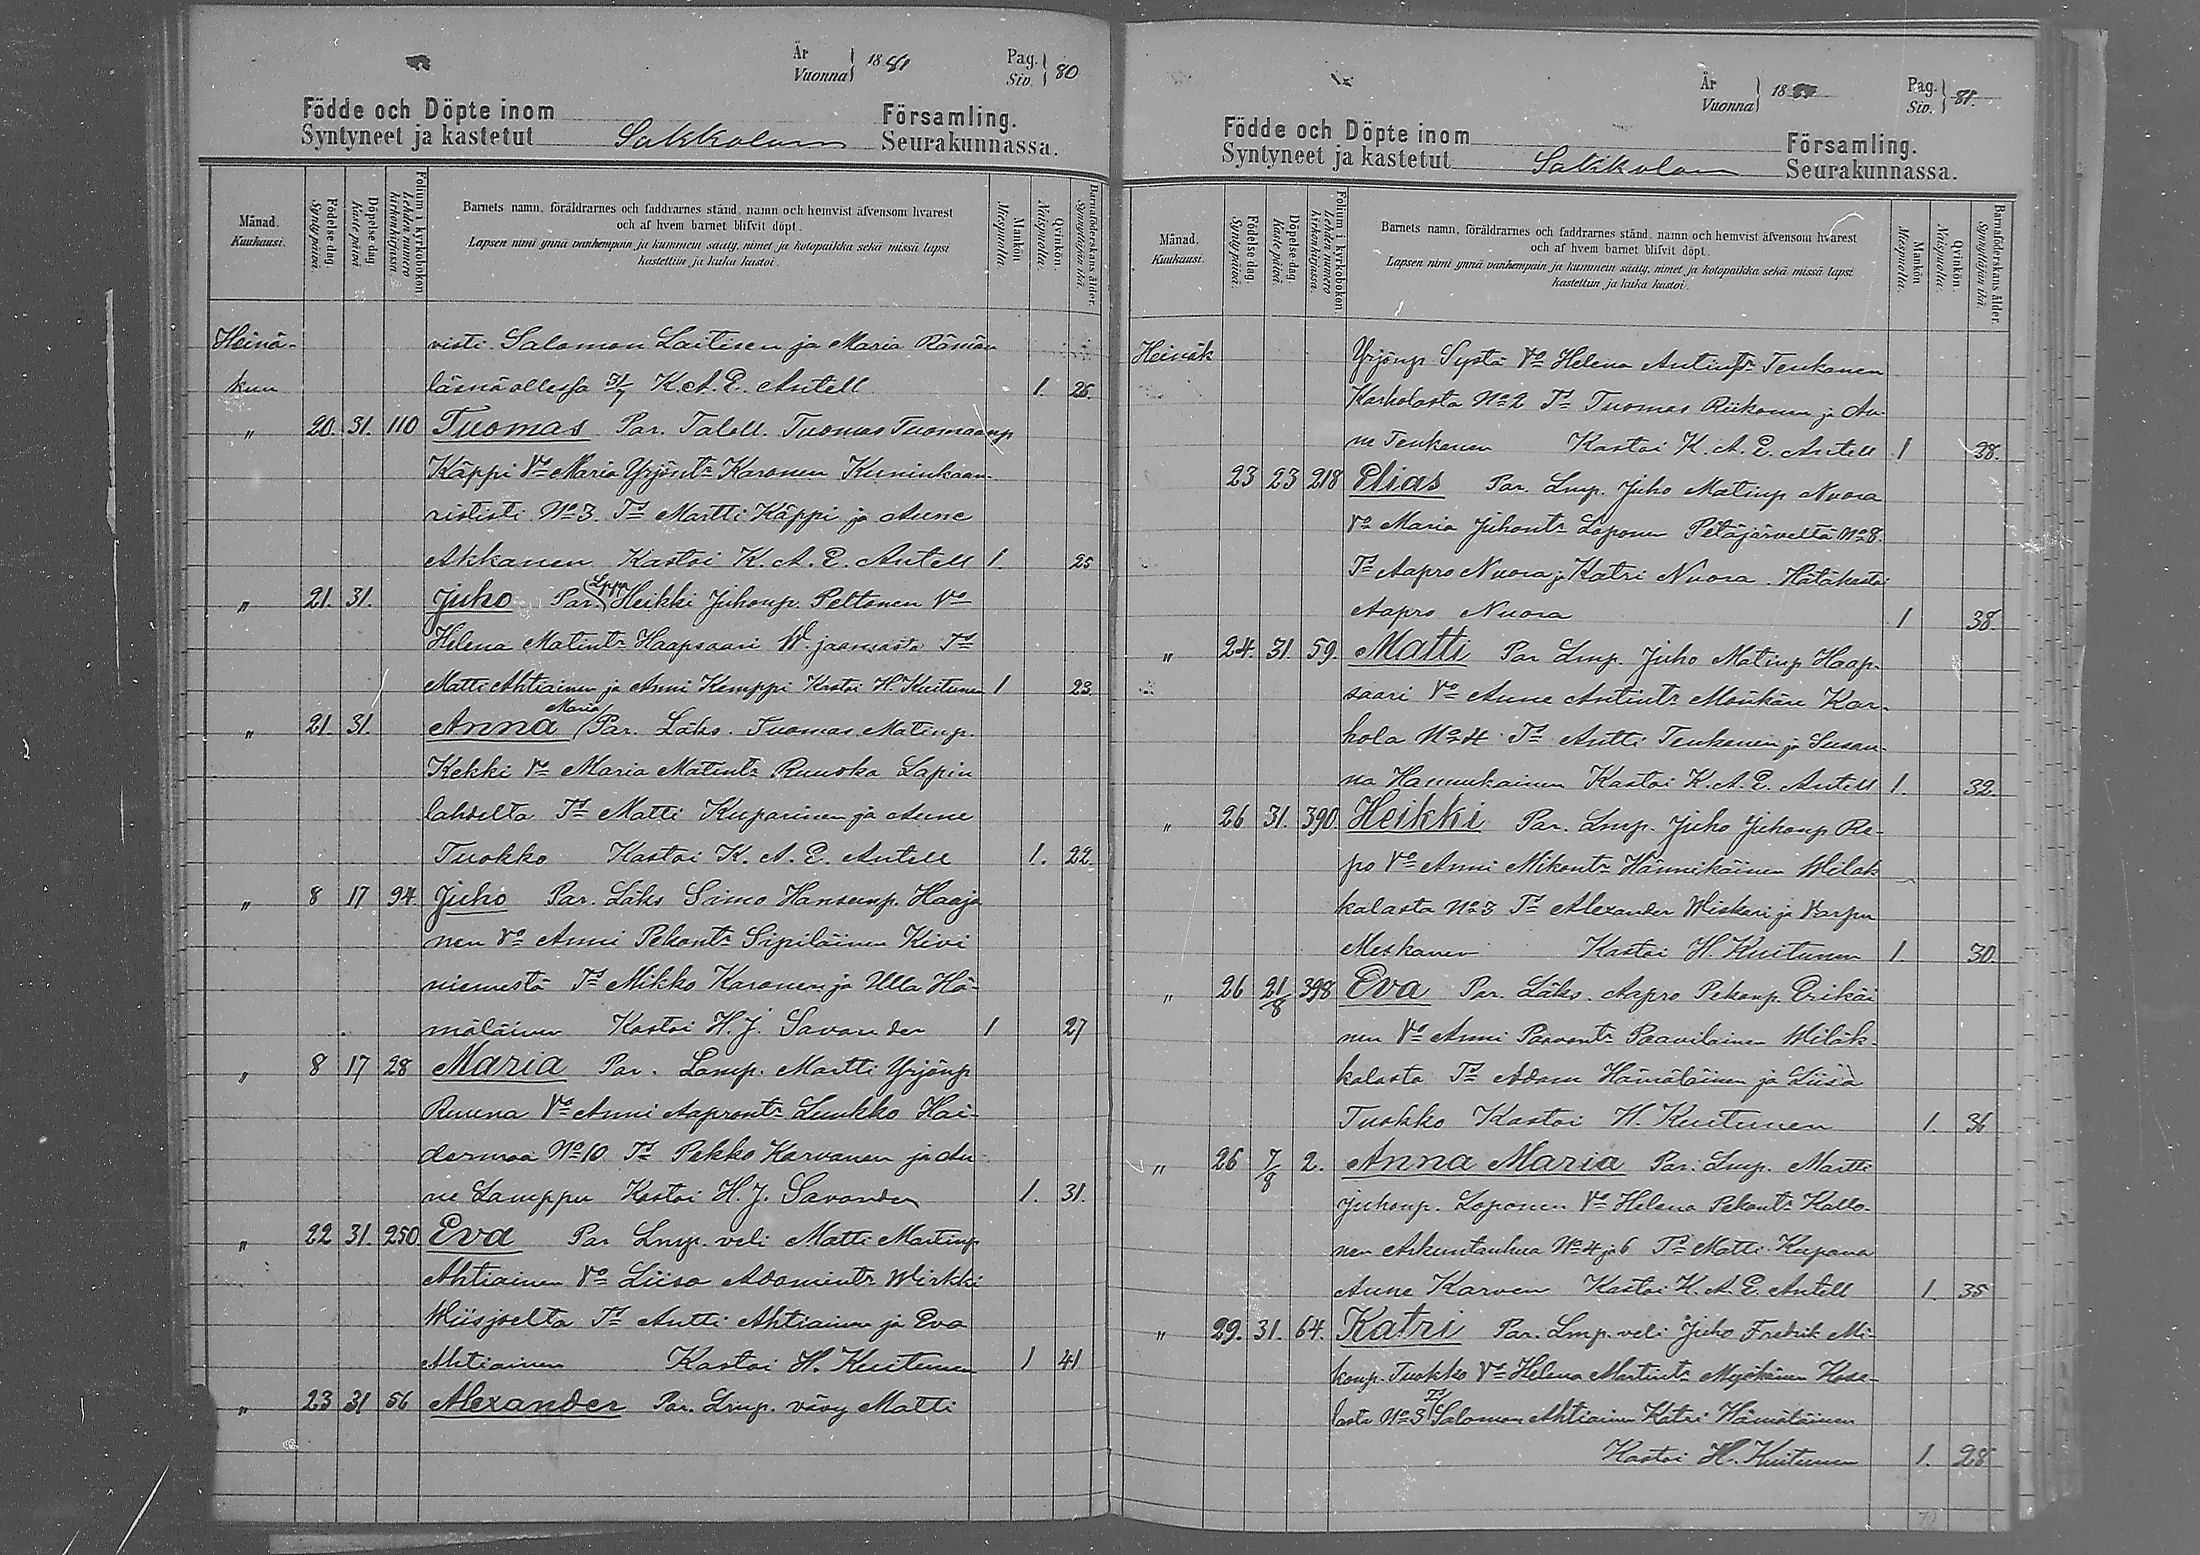 År
Vuonna 1881
Pag.
Siv. 80
Födde och Döpte inom Församling.
Syntyneet ja kastetut Sakkolan Seurakunnassa.
Månad.
Kuukausi.
Födelse dag.
Syntypäivä.
Döpelse dag.
Kaste päivä.
Folium i kyrkoboken.
Lehden numero kirkonkirjassa.
Barnets namn, föräldrarnes och faddrarnes stånd, namn och hemvist äfvensom hvarest
och af hvem barnet blifvit döpt.
Lapsen nimi ynnä vanhempain ja kummein sääty, nimet ja kotopaikka sekä missä lapsi
kastettiin ja kuka kastoi.
Mankön
Miespuolia.
Qvinkön.
Naispuolia.
Barnaföderskans ålder.
Synnyttäjän ikä.
Heinä- visti Salomon Laitisen ja Maria Römön
kun läsnäollessa 31/7 K. A. E. Antell 1. 26.
" 20. 31. 110 Tuomas Par. Taloll. Tuomas Tuomaanp
Käppi Vo Maria Yrjöntr Karonen Kuninkaan-
rististi No 3. Ts Martti Käppi ja Aune
Akkanen Kastoi K. A. E. Antell 1. 25
" 21. 31. Juho Par. Lppr Heikki Juhonp. Peltonen Vo
Helena Matintr Haapsaari W. jaamasta Ts
Matti Ahtiainen ja Anni Kemppi Kastoi H. Kuitunen 1 23.
" 21. 31. Anna Maria Par. Läks. Tuomas Matinp.
Kekki Vo Maria Matintr Ruuska Lapin
lahdelta Ts Matti Kuparinen ja Aune
Tuokko Kastoi K. A. E. Antell 1. 22.
" 8 17 94 Juho Par. Läks Simo Hansunp. Haaja
nen Vo Anni Pekontr Sipiläinen Kivi
niemestä Ts Mikko Karonen ja Ulla Hä-
mäläinen Kastoi H. J. Savander 1 27
" 8 17 28 Maria Par. Lamp. Martti Yrjönp
Ruuna Vo Anni Aaprontr Luukko Hai-
dermaa No 10 Ts Pekko Karvanen ja Au-
ne Lamppu Kastoi H. J. Savander 1. 31.
" 22 31. 250 Eva Par Lmp. veli Matti Martinp
Ahtiainen Vo Liisa Adamintr Wirkki
Wiisjoelta Ts Antti Ahtiainen ja Eva
Ahtiainen Kastoi H. Kuitunen 1 41
" 23 31 56 Alexander Par. Lmp. vävy Matti
År
Vuonna 1881
Pag.
Siv. 81
Födde och Döpte inom Församling.
Syntyneet ja kastetut Sakkolan Seurakunnassa.
Månad.
Kuukausi.
Födelse dag.
Syntypäivä.
Döpelse dag.
Kaste päivä.
Folium i kyrkoboken.
Lehden numero kirkonkirjassa.
Barnets namn, föräldrarnes och faddrarnes stånd, namn och hemvist äfvensom hvarest
och af hvem barnet blifvit döpt.
Lapsen nimi ynnä vanhempain ja kummein sääty, nimet ja kotopaikka sekä missä lapsi
kastettiin ja kuka kastoi.
Mankön
Miespuolia.
Qvinkön.
Naispuolia.
Barnaföderskans ålder.
Synnyttäjän ikä.
Heinäk Yrjönp Systä Vo Helena Antintr Tenkanen
Karholasta No 2 Ts Tuomas Riikonen ja Au-
ne Tenkanen Kastoi K. A. E. Antell 1 38.
23 23 218 Elias Par. Lmp. Juho Matinp Nuora
Vo Maria Juhontr Loponen Petäjärveltä No 8.
Ts Aapro Nuora ja Katri Nuora. Hätäkastoi
Aapro Nuora 1 38.
" 24. 31. 59. Matti Par Lmp. Juho Matinp Haap-
saari Vo Aune Antintr Mönkäre Kar-
hola No 4 Ts Antti Tenkanen ja Susan-
na Hannukainen Kastoi K. A. E. Antell 1. 32.
" 26 31. 390. Heikki Par. Lmp. Juho Juhonp Re-
po Vo Anni Mikontr Hännikäinen Wilak
kalasta No 3 Ts Alexander Wiskari ja Varpu
Meskanen Kastoi H. Kuitunen 1. 30.
" 26 21/8 398 Eva Par. Läks. Aapro Pekonp. Erikäi
nen Vo Anni Paavontr Paavilainen Wiläk-
kalasta Ts Adam Hämäläinen ja Liisa
Tuokko Kastoi H. Kuitunen 1. 36
" 26 7/8 2. Anna Maria Par. Lmp. Martti
Juhonp. Loponen Vo Helena Pekontr Kallo-
nen Arkuntanhua No 4 ja 6 Ts Matti Kupana
Aune Karven Kastoi K. A. E. Antell 1. 35
" 29. 31. 64. Katri Par. Lmp. veli Juho Fredrik Mi-
konp. Tuokko Vo Helena Martintr Myökänen Hase-
lasta No 5 Ts Salomon Ahtiainen Katri Hämäläinen
Kastoi H. Kuitunen 1. 28